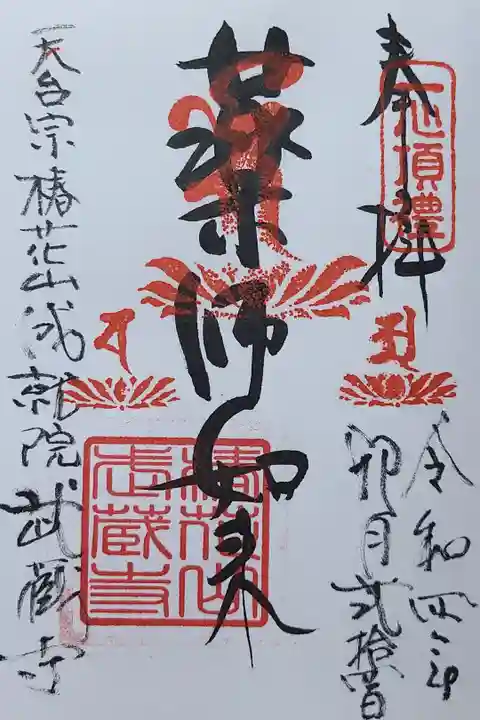 奉拝
志心頂禮
令和四年
卯月弐拾日
薬師如来
椿花山
武蔵寺
天台宗椿花山成就院武蔵寺